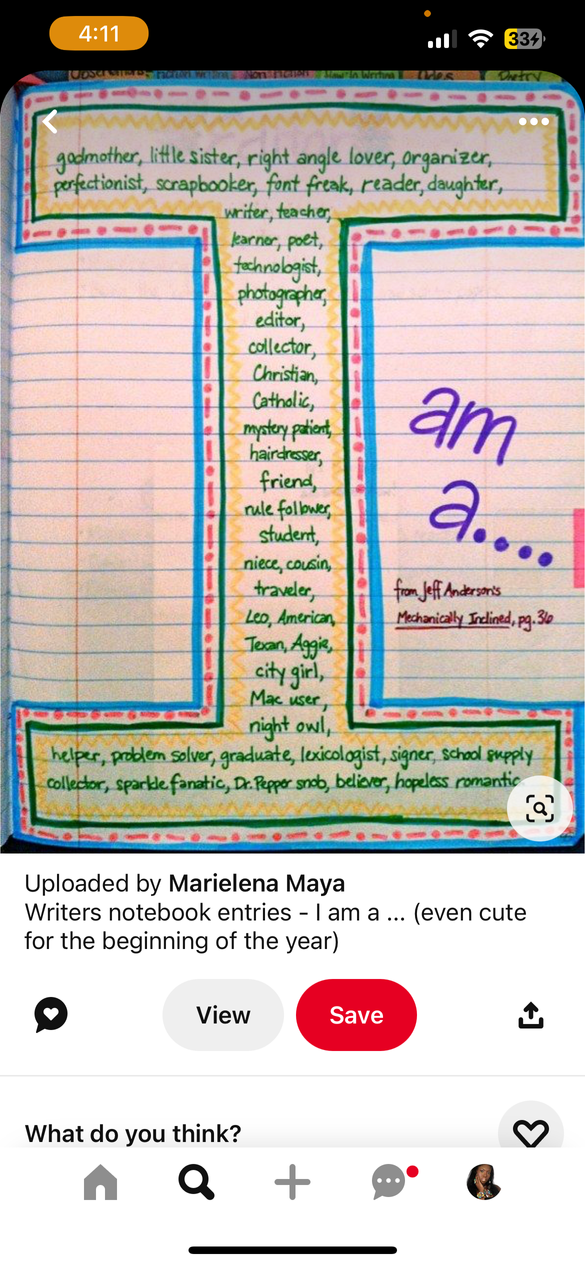 4:11
33
Fiction Writing
Non Fiction
Poetry
godmother, little sister, right angle lover, organizer,
perfectionist, scrapbooker, font freak, reader, daughter,
writer, teacher,
learner, poet,
technologist,
photographer,
editor,
collector,
Christian,
Catholic,
mystery patient,
hairdresser,
friend,
rule follower,
student,
niece, cousin,
traveler,
Leo, American,
Texan, Aggie,
city girl,
Mac user,
night owl,
helper, problem solver, graduate, lexicologist, signer, school supply
collector, sparkle fanatic, Dr. Pepper snob, believer, hopeless romantic
am
a....
from Jeff Anderson's
Mechanically Inclined, pg. 36
Uploaded by Marielena Maya
Writers notebook entries - I am a ... (even cute
for the beginning of the year)
View
Save
What do you think?